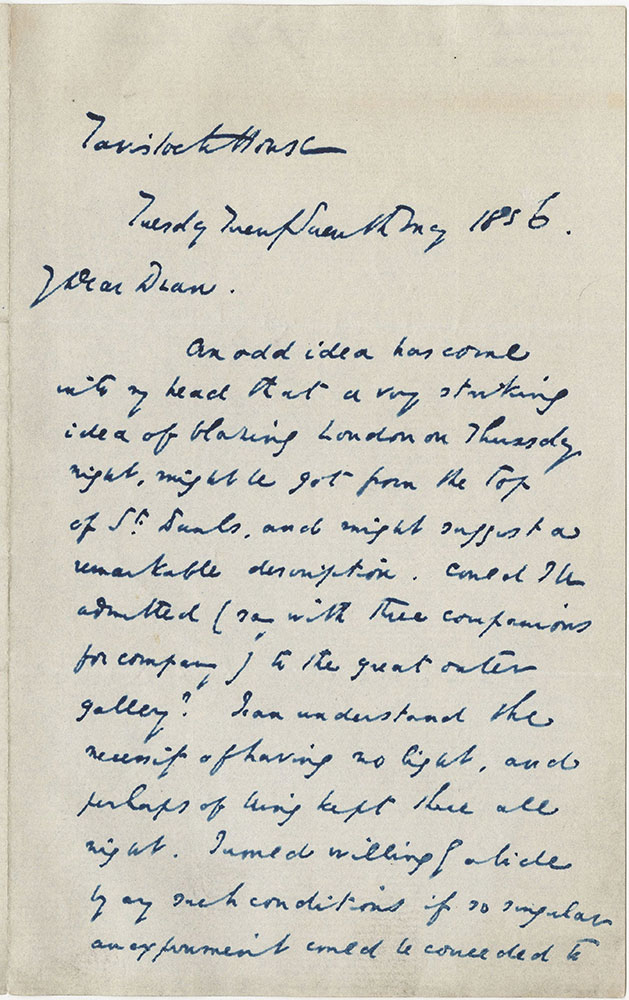 Tavistock House
Tuesday Twenty Seventh May 1856.
My Dear Dean.
An odd idea has come
into my head that a very striking
idea of blazing London on Thursday
night, might be got from the top
of St. Pauls, and might suggest a
remarkable description. Could I be
admitted (say with three companions
for company) to the great outer
gallery? I can understand the
necessity of having no light, and
perhaps of being kept there all
night. I would willingly abide
by any such conditions if so singular
an experiment could be conceded to